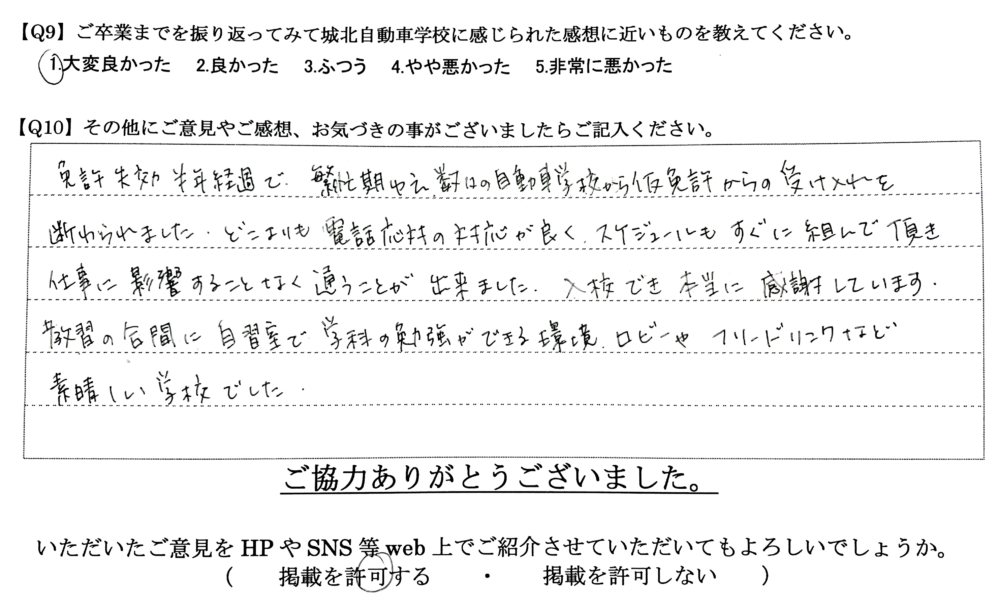 【Q9】ご卒業までを振り返ってみて城北自動車学校に感じられた感想に近いものを教えてください。
1.大変良かった 2.良かった 3.ふつう 4.やや悪かった 5.非常に悪かった
【Q10】その他にご意見やご感想、お気づきの事がございましたらご記入ください。
免許失効半年経過で、繁忙期ゆえ数々の自動車学校から仮免許からの受け入れを
断わられました。どこよりも電話応対の対応が良く、スケジュールもすぐに組んで頂き
仕事に影響することなく通うことが出来ました。入校でき本当に感謝しています。
教習の合間に自習室で学科の勉強ができる環境、ロビーやフリードリンクなど
素晴しい学校でした。
ご協力ありがとうございました。
いただいたご意見をHPやSNS等web上でご紹介させていただいてもよろしいでしょうか。
( 掲載を許可する ・ 掲載を許可しない )